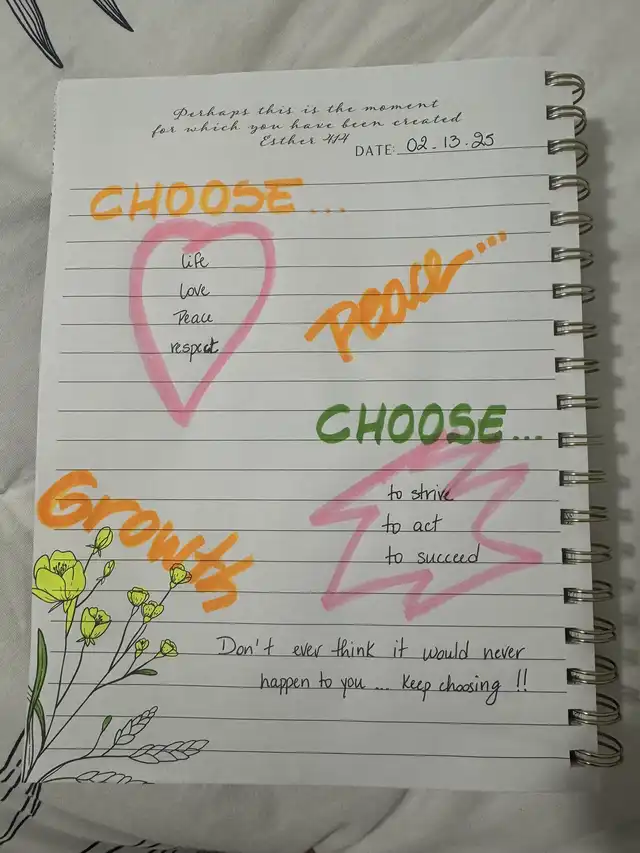 Perhaps this is the moment
for which you have been created
Esther 4:14
DATE: 02.13.25
CHOOSE...
life
love
Peace
respect
Peace...
CHOOSE...
to strive
to act
to succeed
Growth
Don't ever think it would never
happen to you ... keep choosing !!